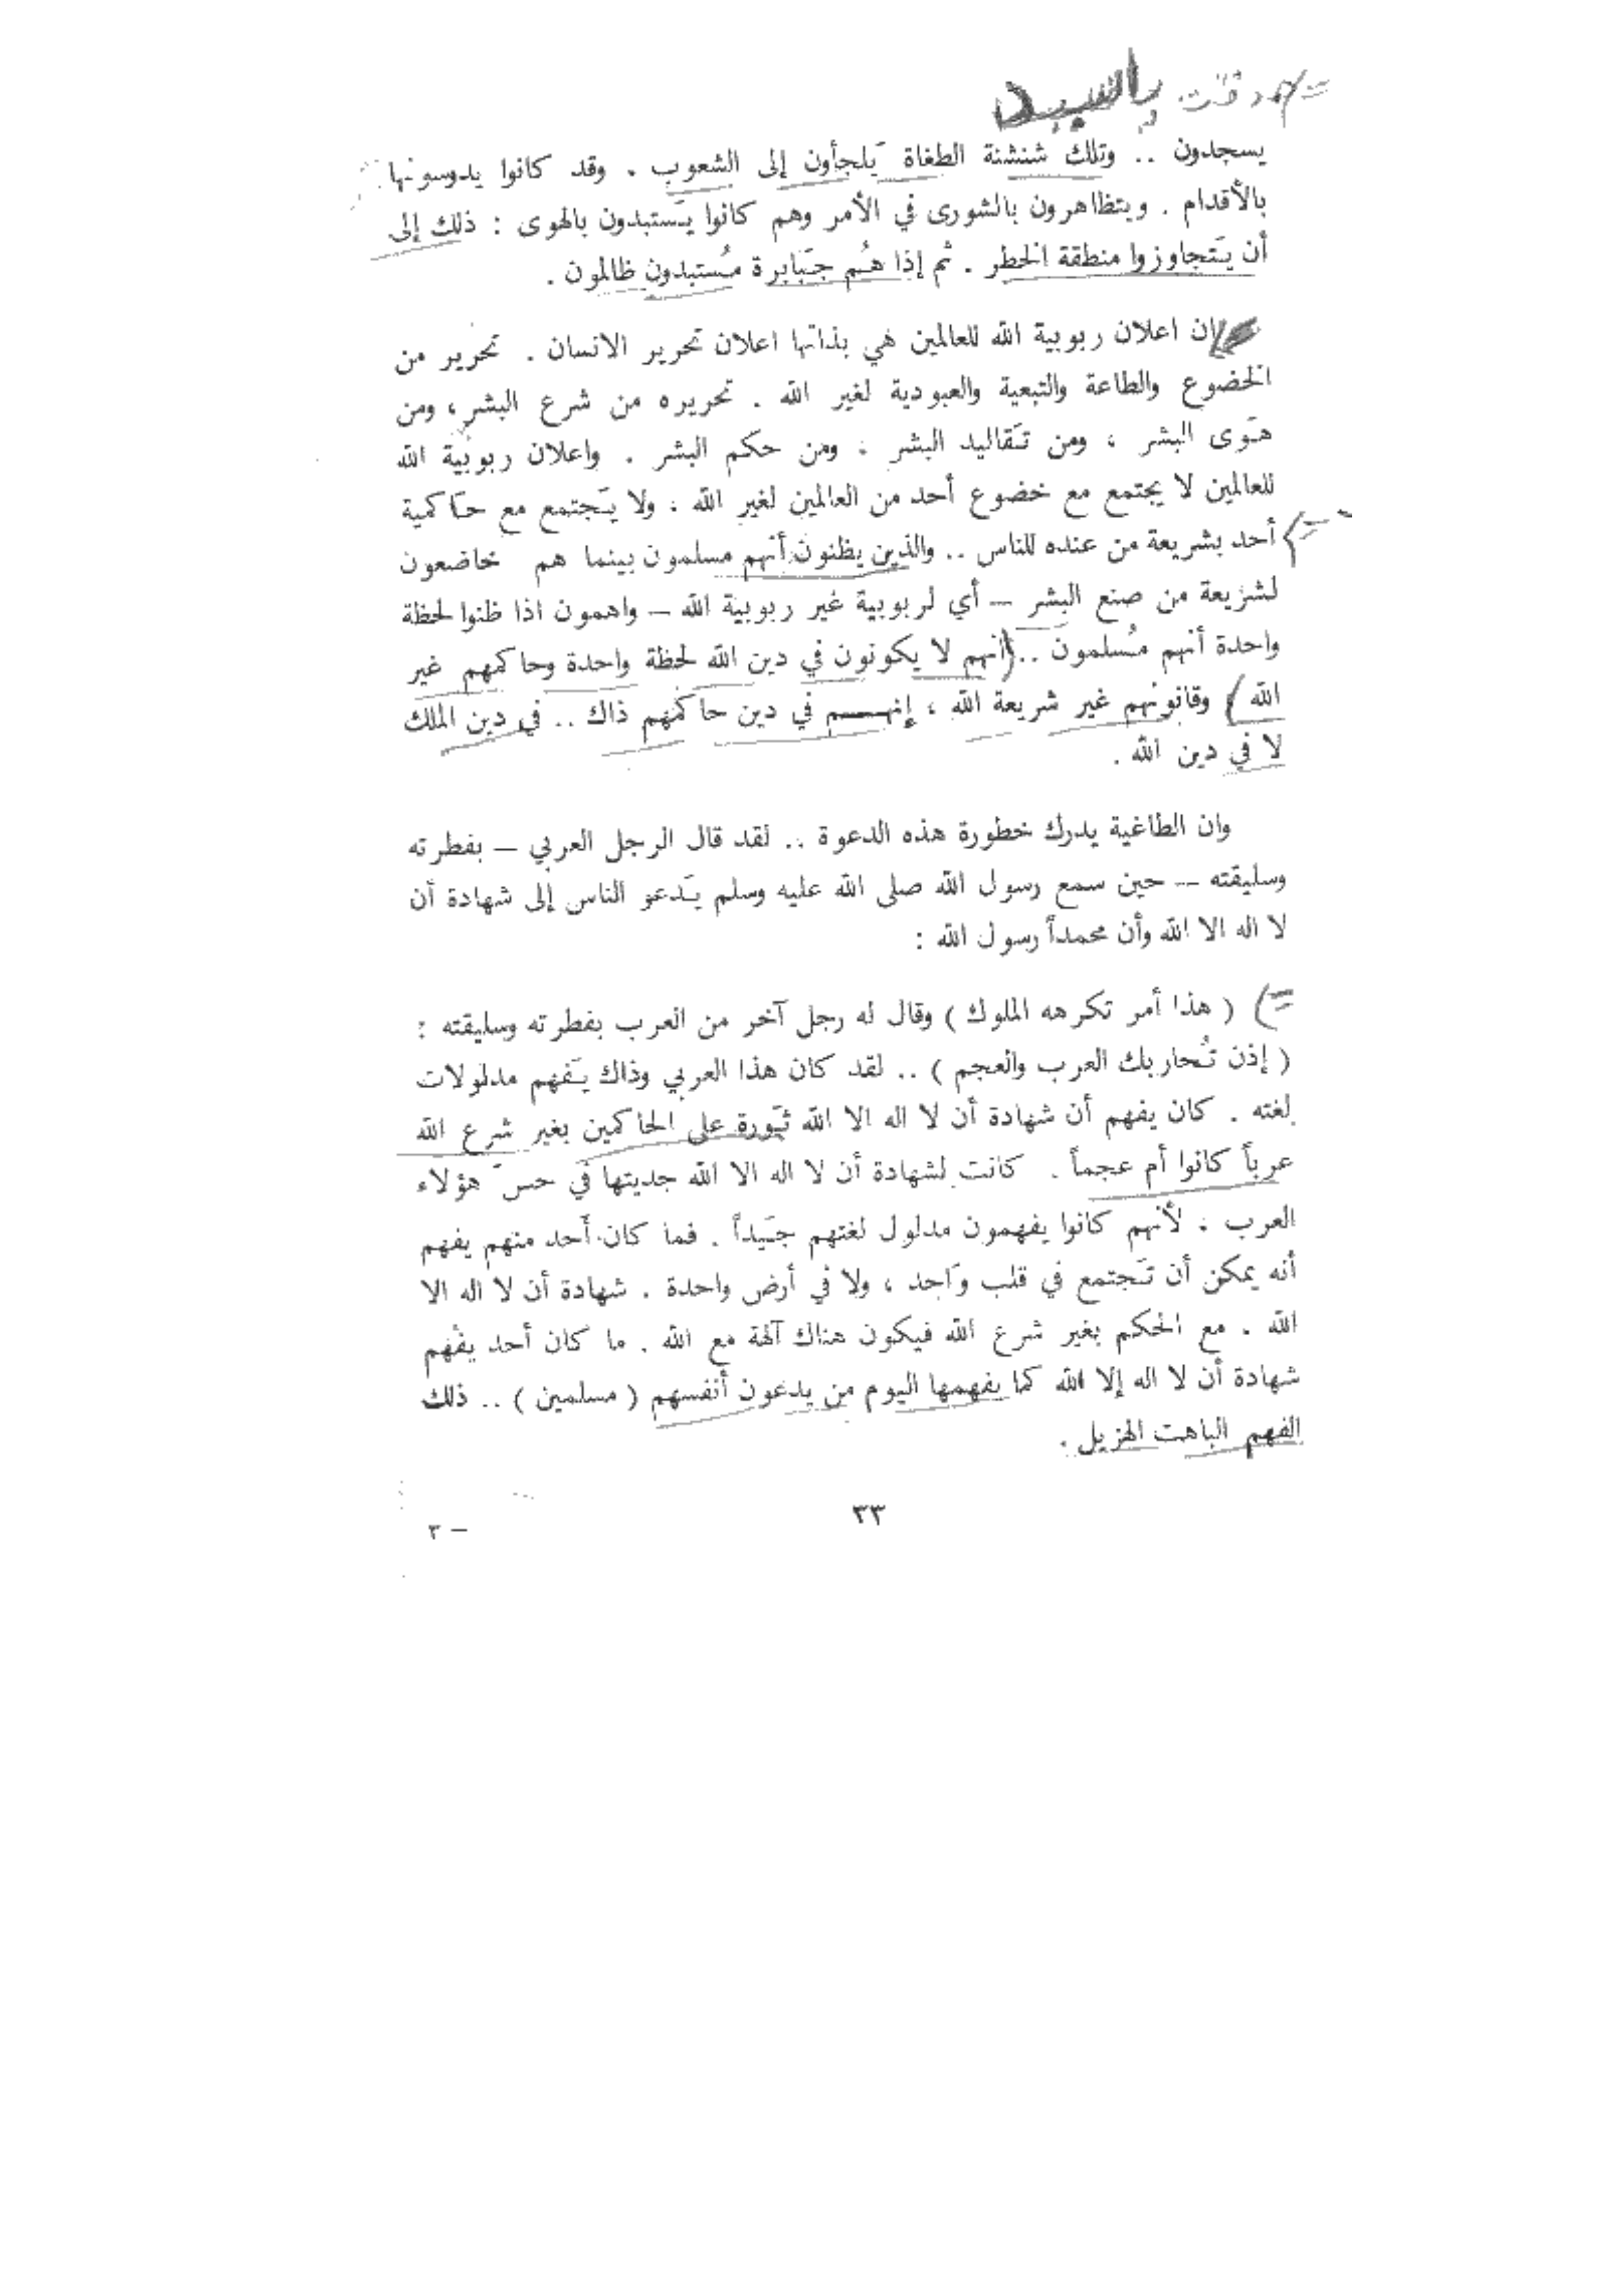 صدقت يا سيد
يسجدون .. وتلك شنشنة الطغاة يَلجأون إلى الشعوب . وقد كانوا يدوسونها
بالأقدام . ويتظاهرون بالشورى في الأمر وهم كانوا يَستبدون بالهوى : ذلك إلى
أن يَتجاوزوا منطقة الخطر . ثم إذا هُم جَبابرة مُستبدون ظالمون .
ان اعلان ربوبية الله للعالمين هي بذاتها اعلان تحرير الانسان . تحرير من
الخضوع والطاعة والتبعية والعبودية لغير الله . تحريره من شرع البشر ، ومن
هَوى البشر ، ومن تَقاليد البشر ، ومن حكم البشر . واعلان ربوبية الله
للعالمين لا يجتمع مع خضوع أحد من العالمين لغير الله ، ولا يَجتمع مع حَاكمية
أحد بشريعة من عنده للناس .. والذين يظنون أنهم مسلمون بينما هم خاضعون
لشريعة من صنع البشر – أي لربوبية غير ربوبية الله – واهمون اذا ظنوا لحظة
واحدة أنهم مُسلمون .. (انهم لا يكونون في دين الله لحظة واحدة وحاكمهم غير
الله ) وقانونهم غير شريعة الله ، إنهـــم في دين حاكمهم ذاك .. في دين الملك
لا في دين الله .
وان الطاغية يدرك خطورة هذه الدعوة .. لقد قال الرجل العربي – بفطرته
وسليقته – حين سمع رسول الله صلى الله عليه وسلم يَدعو الناس إلى شهادة أن
لا اله الا الله وأن محمداً رسول الله :
( هذا أمر تكرهه الملوك ) وقال له رجل آخر من العرب بفطرته وسليقته :
( إذن تُحاربك العرب والعجم ) .. لقد كان هذا العربي وذاك يَفهم مدلولات
لغته . كان يفهم أن شهادة أن لا اله الا الله ثَورة على الحاكمين بغير شرع الله
عرباً كانوا أم عجماً . كانت لشهادة أن لا اله الا الله جديتها في حسّ هؤلاء
العرب ، لأنهم كانوا يفهمون مدلول لغتهم جَيداً . فما كان أحد منهم يفهم
أنه يمكن أن تَجتمع في قلب وَاحد ، ولا في أرض واحدة . شهادة أن لا اله الا
الله . مع الحكم بغير شرع الله فيكون هناك آلهة مع الله . ما كان أحد يفهم
شهادة أن لا اله إلا الله كما يفهمها اليوم من يدعون أنفسهم ( مسلمين ) .. ذلك
الفهم الباهت الهزيل .
٣٣
– ٣